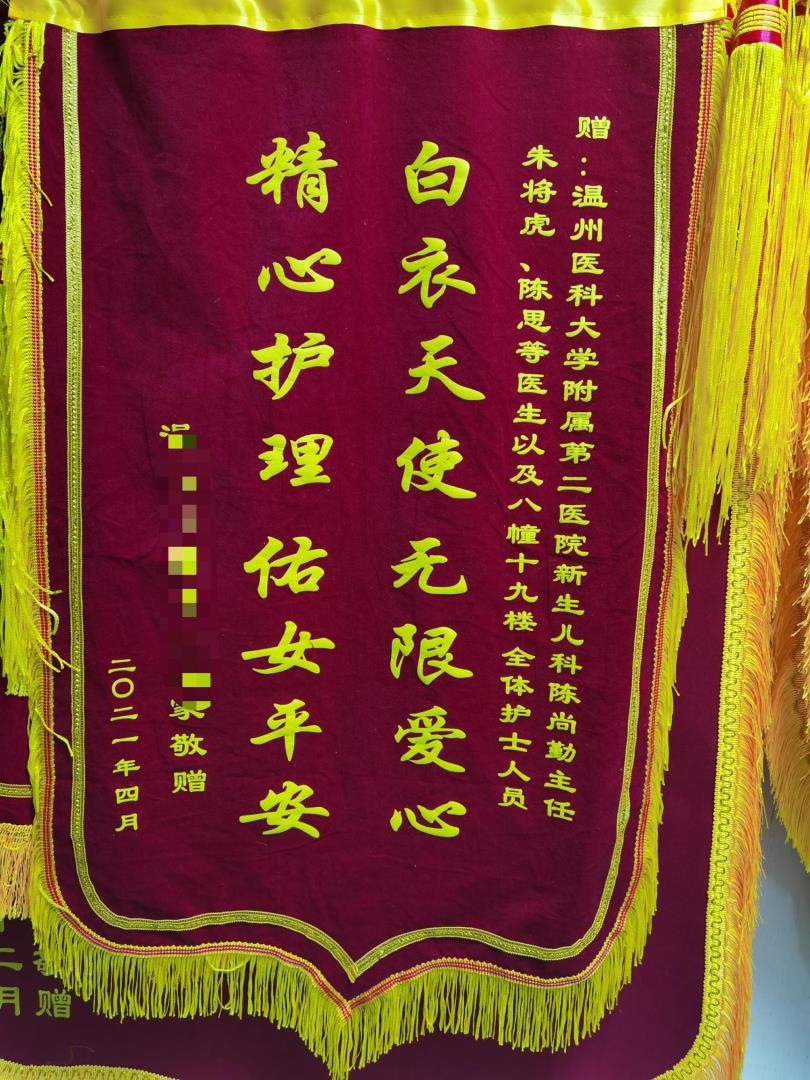 赠：温州医科大学附属第二医院新生儿科陈尚勤主任
朱将虎、陈思等医生以及八幢十九楼 全体护士人员
白衣天使无限爱心
精心护理佑女平安
家敬赠
二〇二一年四月
敬赠
二月